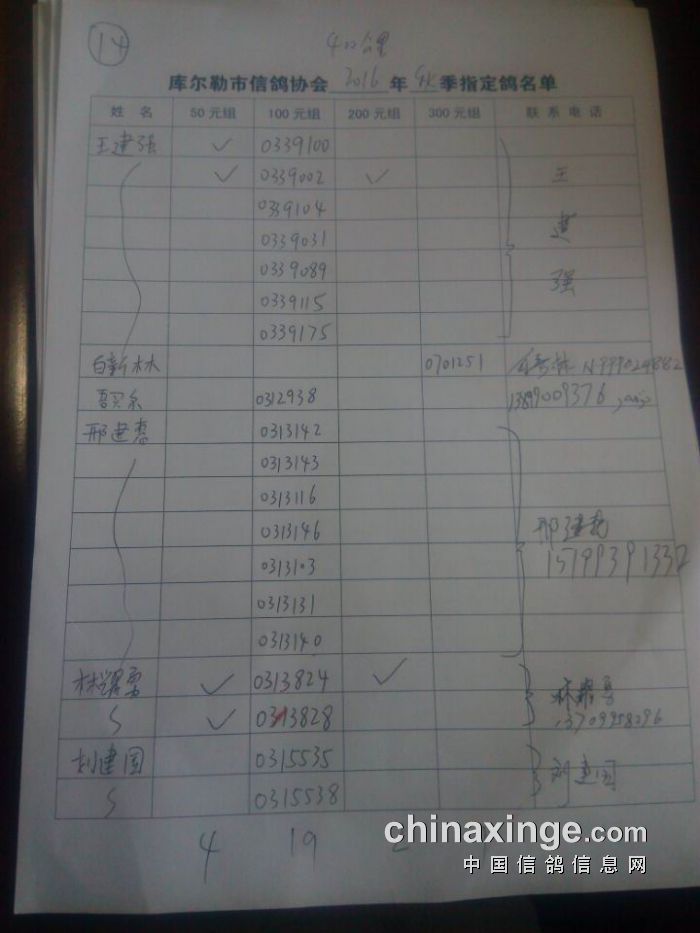 14
400公里
库尔勒市信鸽协会 2016 年 秋 季指定鸽名单
姓 名 50元组 100元组 200元组 300元组 联系电话
王建强 ✓ 0339100
✓ 0339002 ✓ 王
0339104
0339031 建
0339089
0339115 强
0339175
白新林 0701251
吾买尔 0312938 13899009376
邢建 0313142
0313143
0313116
0313146 邢建
0313103 15199391332
0313131
0313140
林耀勇 ✓ 0313824 ✓ 林耀勇
✓ 0313828 13709958296
刘建国 0315535 刘建国
0315538
4 19 2
chinaxinge.com
中国信鸽信息网